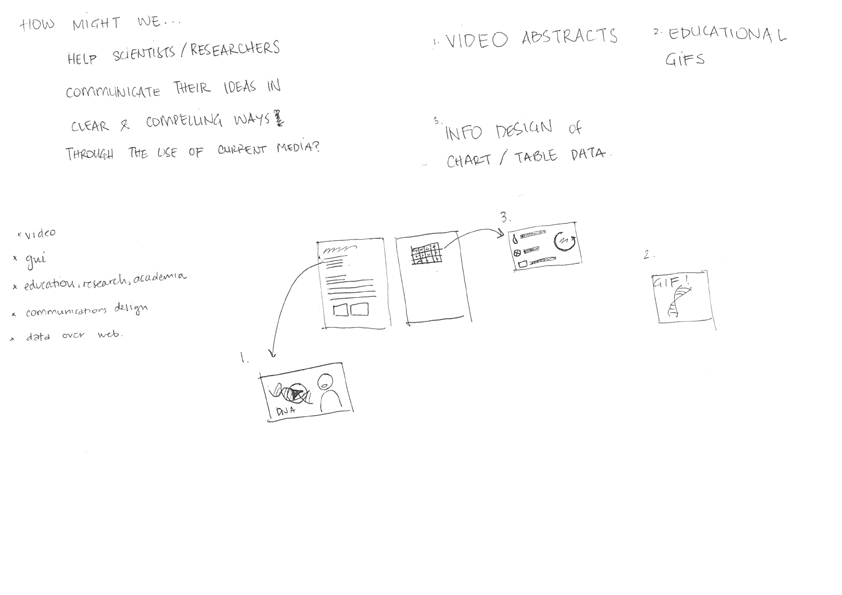 HOW MIGHT WE...
HELP SCIENTISTS/RESEARCHERS
COMMUNICATE THEIR IDEAS IN
CLEAR & COMPELLING WAYS
THROUGH THE USE OF CURRENT MEDIA?
1. VIDEO ABSTRACTS
2. EDUCATIONAL
GIFS
3. INFO DESIGN of
CHART / TABLE DATA.
* video
* gui
* education, research, academia
* communications design
* data over web.
3.
2.
GIF!
1.
DNA